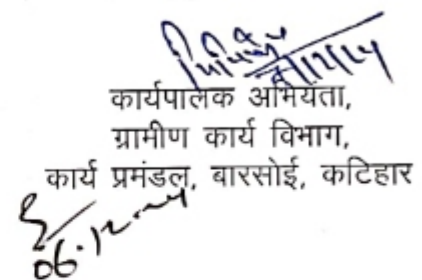 कार्यपालक अभियंता,
ग्रामीण कार्य विभाग,
कार्य प्रमंडल, बारसोई, कटिहार
06.12.24